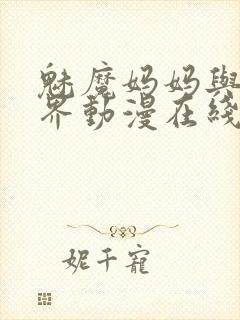 魅魔妈妈與
界動漫在綫
妮千寵